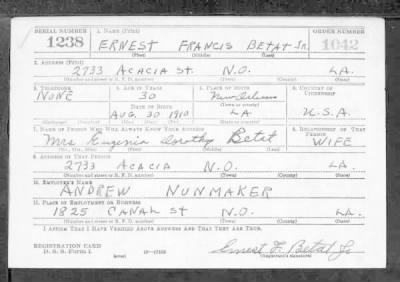 SERIAL NUMBER 1. NAME (Print) ORDER NUMBER
1238 ERNEST FRANCIS BETAT Jr. 1042
(First) (Middle) (Last)
2. ADDRESS (Print)
2733 ACACIA ST. N.O. LA.
(Number and street or R. F. D. number) (Town) (County) (State)
3. TELEPHONE 4. AGE IN YEARS 5. PLACE OF BIRTH 6. COUNTRY OF CITIZENSHIP
NONE 30 New Orleans
DATE OF BIRTH (Town or county)
AUG. 30 1910 LA U.S.A.
(Mo.) (Day) (Yr.) (State or country)
7. NAME OF PERSON WHO WILL ALWAYS KNOW YOUR ADDRESS 8. RELATIONSHIP OF THAT PERSON
Mrs Eugenia Dorothy Betat WIFE
(Mr., Mrs., Miss) (First) (Middle) (Last)
9. ADDRESS OF THAT PERSON
2733 ACACIA N.O. LA.
(Number and street or R. F. D. number) (Town) (County) (State)
10. EMPLOYER'S NAME
ANDREW NUNMAKER
11. PLACE OF EMPLOYMENT OR BUSINESS
1825 CANAL ST N.O. LA.
(Number and street or R. F. D. number) (Town) (County) (State)
I AFFIRM THAT I HAVE VERIFIED ABOVE ANSWERS AND THAT THEY ARE TRUE.
REGISTRATION CARD
D. S. S. Form 1 (over) Ernest F. Betat Jr
(Registrant's signature)